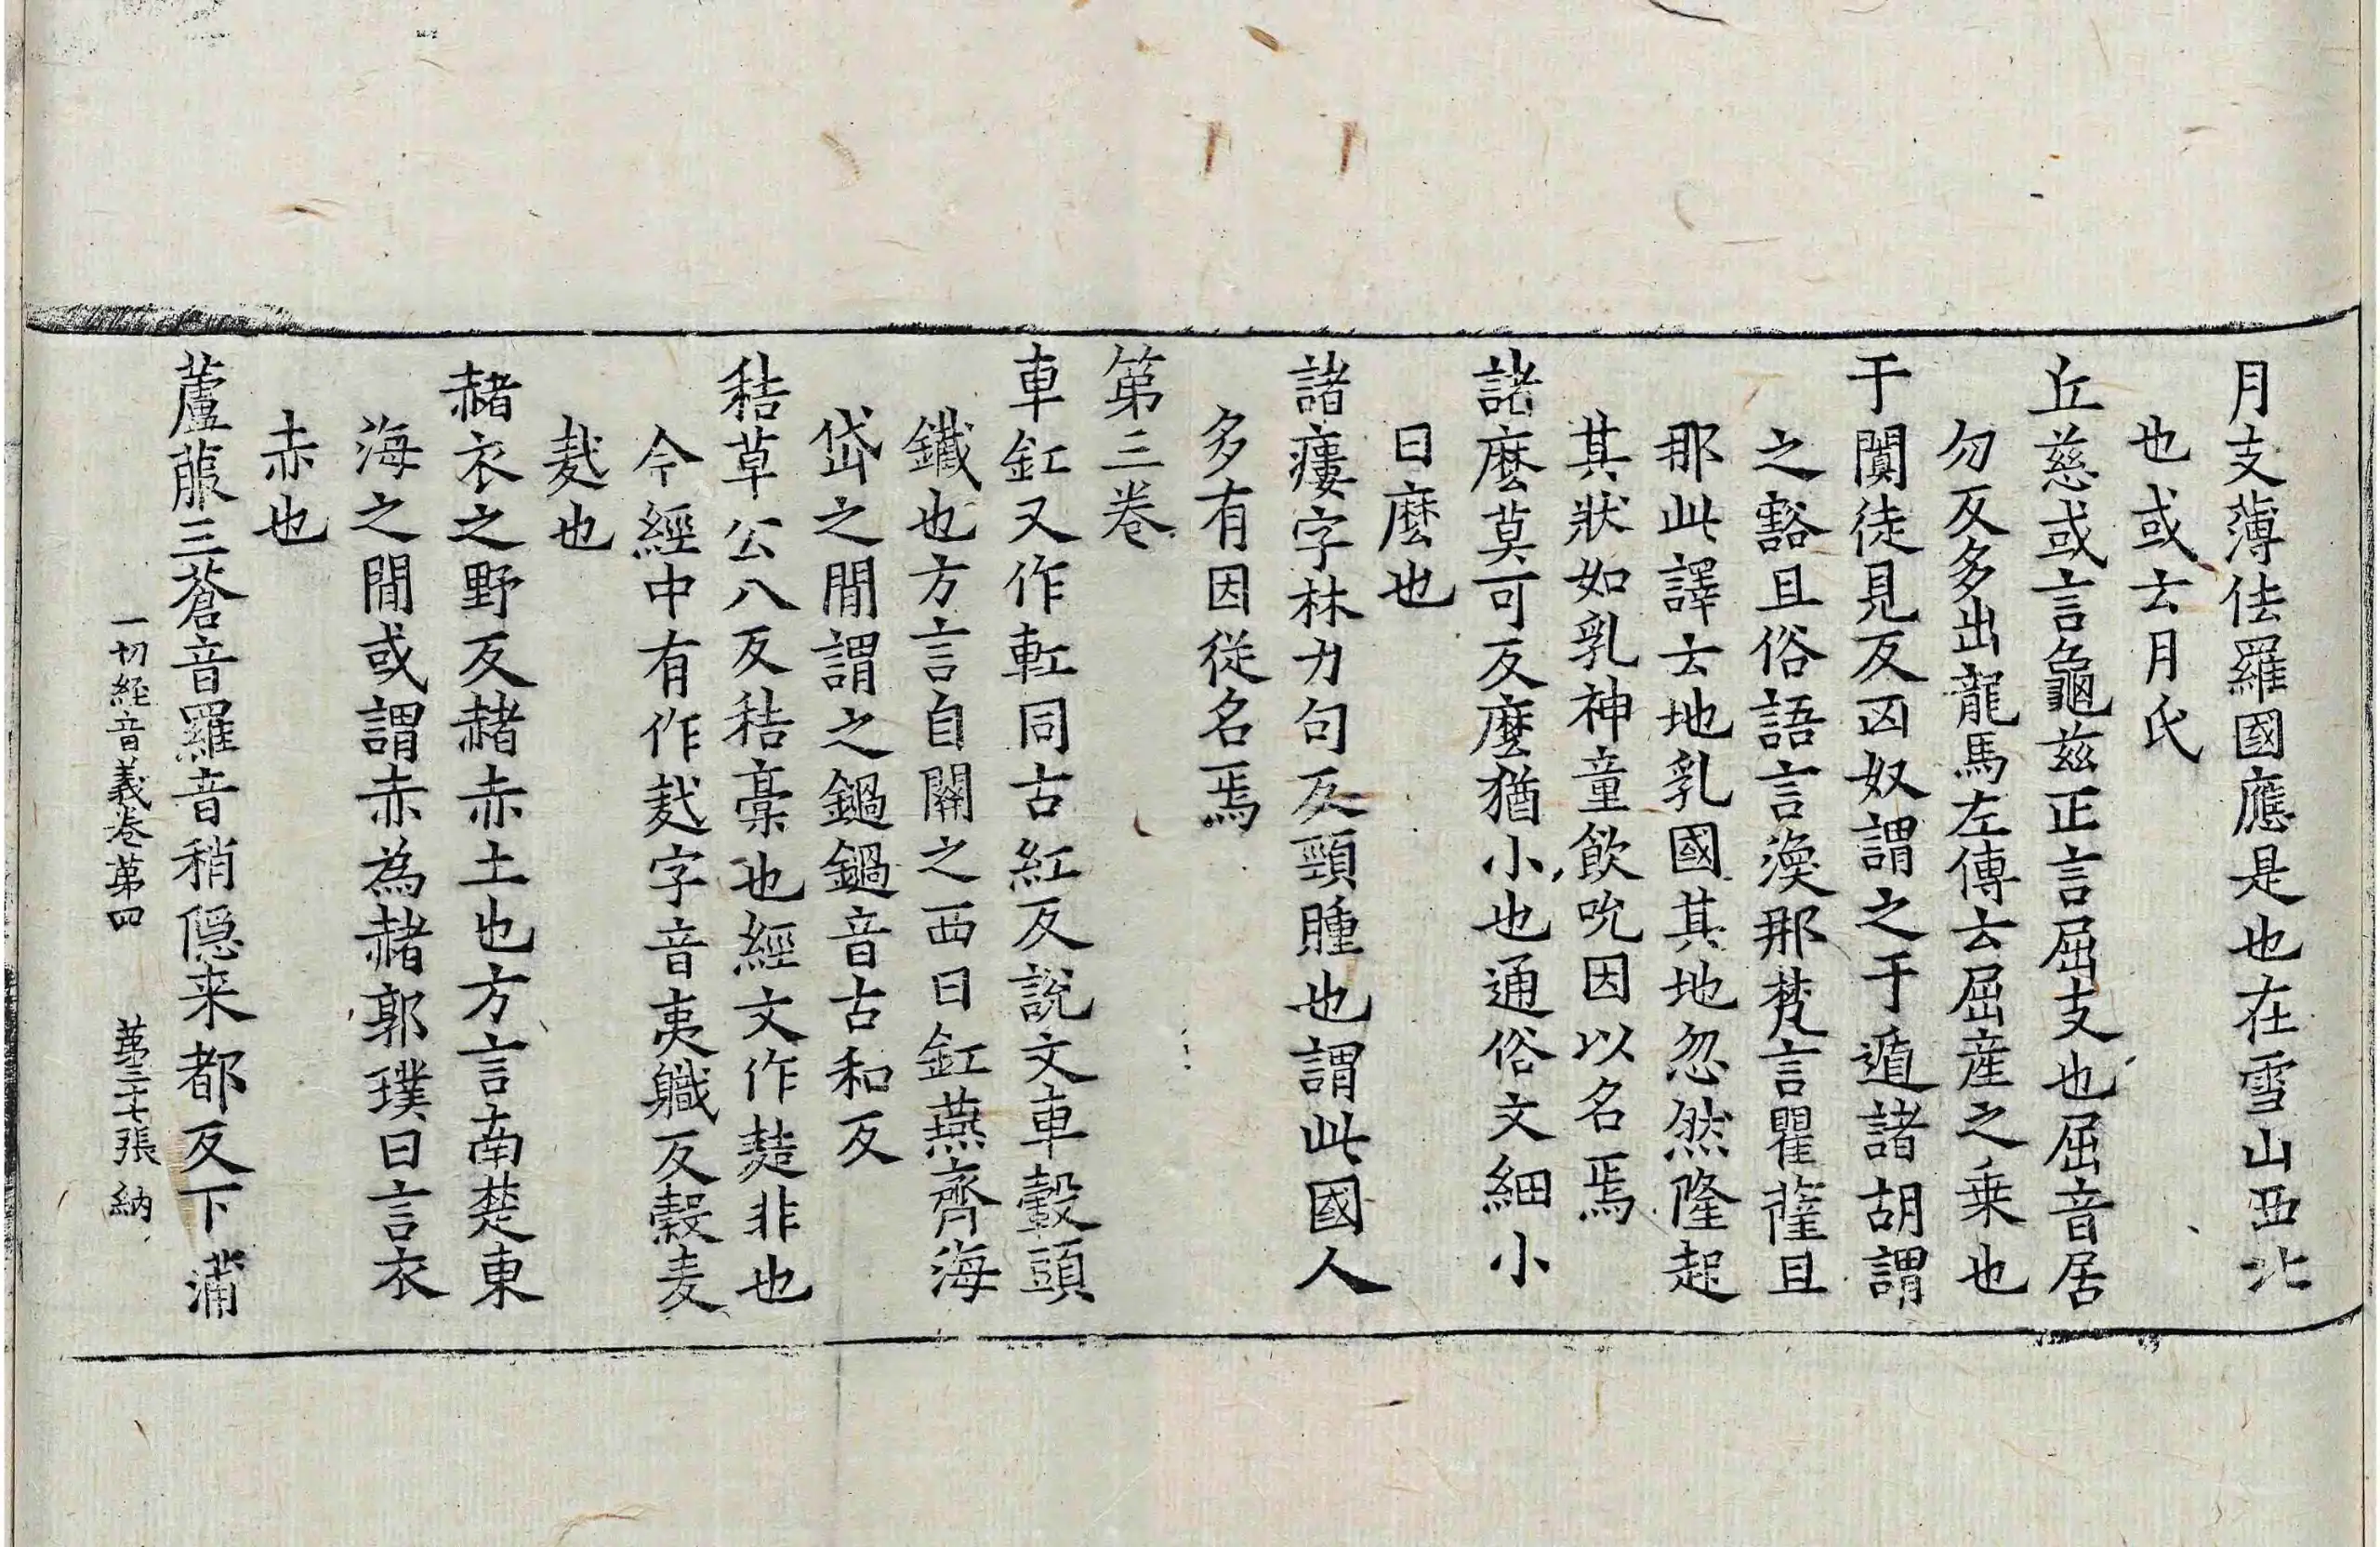 月支薄佉羅國應是也在雪山西北
也或云月氏
丘慈或言龜茲正言屈支也屈音居
勿反多出龍馬左傳云屈產之乗也
于闐徒見反匈奴謂之于遁諸胡謂
之豁旦俗語言渙那梵言瞿薩旦
那此譯云地乳國其地忽然隆起
其狀如乳神童飲吮因以名焉
諸麼莫可反麼猶小也通俗文細小
曰麼也
諸瘻字林力句反頸腫也謂此國人
多有因從名焉
第三卷
車釭又作䡌同古紅反說文車轂頭
鐵也方言自關之西曰釭燕齊海
岱之間謂之鍋鍋音古和反
秸草公八反秸稾也經文作𪌣非也
今經中有作麩字音夷職反麧麦
麩也
赭衣之野反赭赤土也方言南楚東
海之間或謂赤為赭郭璞曰言衣
赤也
蘆菔三蒼音羅音稍隠来都反下蒲
一切経音義卷第四　第三十七張　納